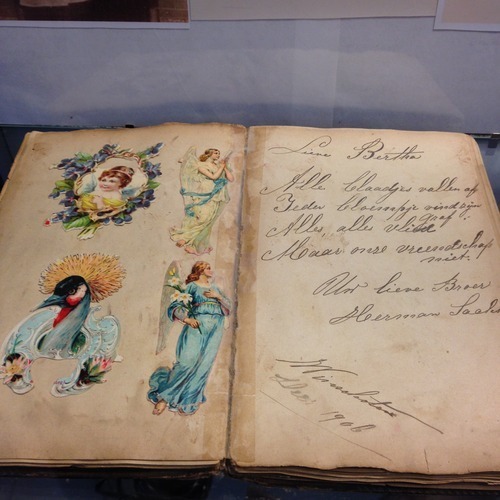 Lieve Bertha
Alle blaadjes vallen af
Ieder bloempje vind zijn
graf.
Alles, alles vlied
Maar onze vreendschap
niet.
Uw lieve Broer
Herman
Winschoten
Dec 1906